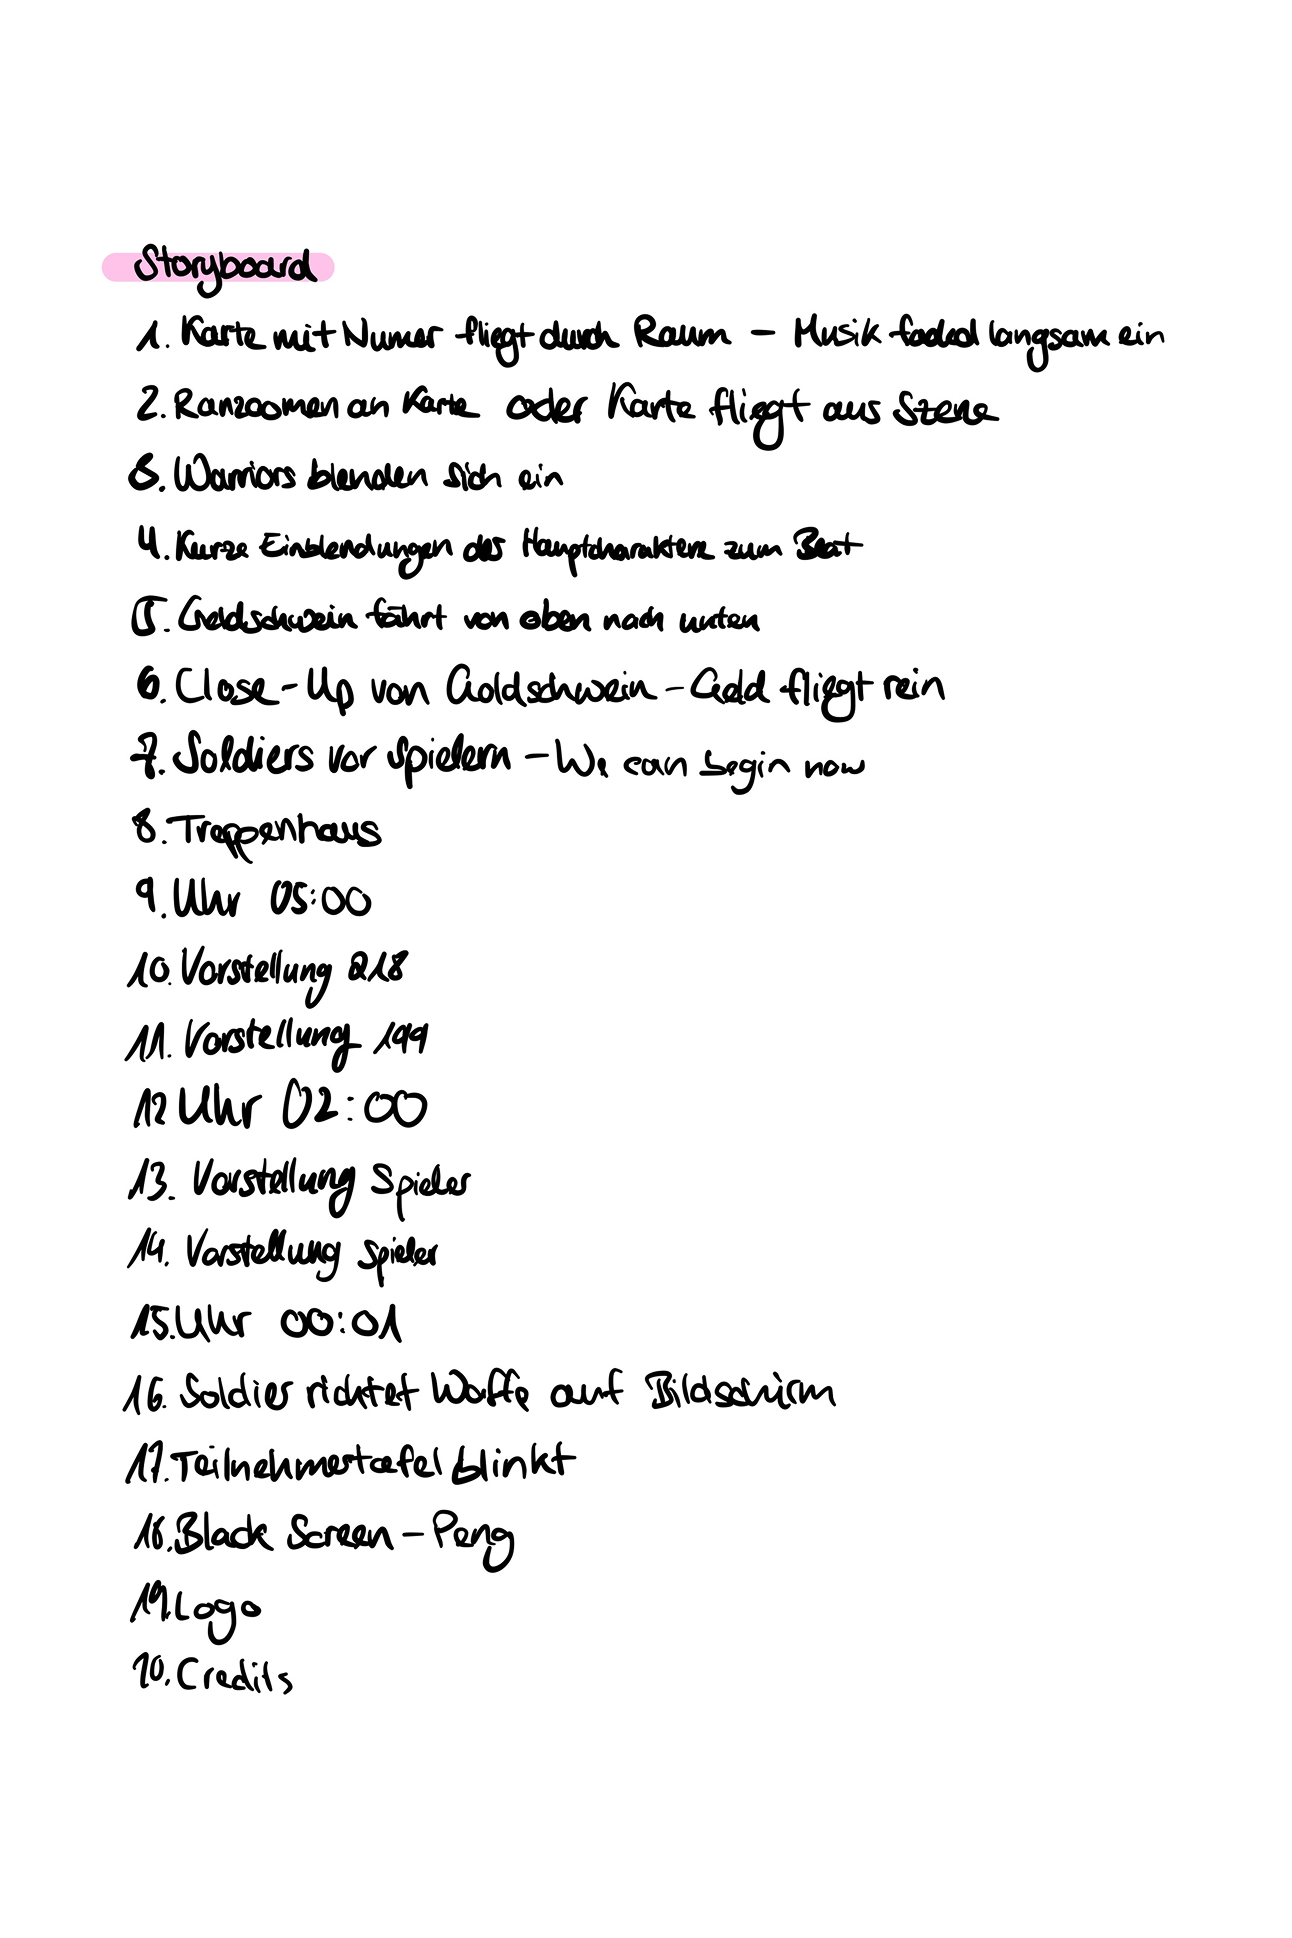 Storyboard
1. Karte mit Numer fliegt durch Raum - Musik faded langsam ein
2. Ranzoomen an Karte oder Karte fliegt aus Szene
3. Warriors blenden sich ein
4. Kurze Einblendungen des Hauptcharaktere zum Beat
5. Goldschwein fährt von oben nach unten
6. Close-Up von Goldschwein - Geld fliegt rein
7. Soldiers vor Spielern - We can begin now
8. Treppenhaus
9. Uhr 05:00
10. Vorstellung 218
11. Vorstellung 199
12 Uhr 02:00
13. Vorstellung Spieler
14. Vorstellung Spieler
15. Uhr 00:01
16. Soldier richtet Waffe auf Bildschirm
17. Teilnehmertafel blinkt
18. Black Screen - Peng
19. Logo
20. Credits